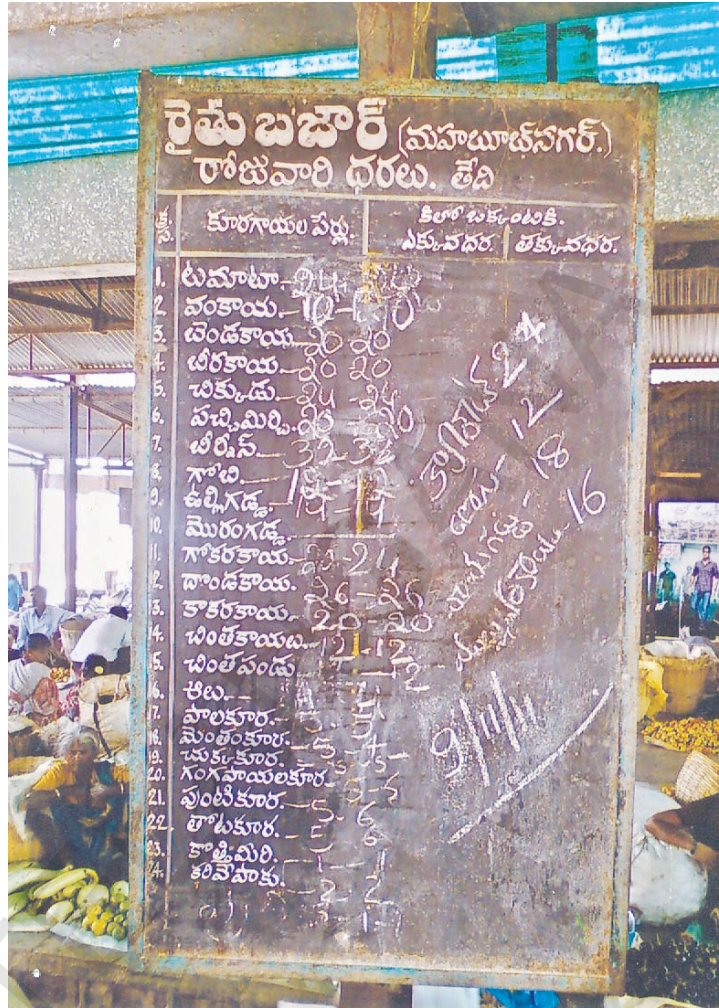 రైతు బజార్ (మహబూబ్‌నగర్.)
రోజువారి ధరలు. తేది
క్ర. స. కూరగాయల పేర్లు. కిలో ఒక్కంటికి.
ఎక్కువధర. తక్కువధర.
1. టమాటా-24-24
2 వంకాయ.-10-10
3. బెండకాయ-20 20
4. బీరకాయ-20 20
5. చిక్కుడు-24-24
6. పచ్చిమిర్చి-20-20
7. బీర్నీస్-32-32
8. గోబి.
9. ఉల్లిగడ్డ.-14-14
10. మొరంగడ్డ
11. గోకరకాయ-24
12. దొండకాయ.-26-26
13. కాకరకాయ-20-20
14. చింతకాయలు-12-12
15. చింతపండు
16. ఆలు.--12-
17. పాలకూర.-5-5
18. మెంతంకూర.-5-5
19. చుక్కకూర-5-5-
20. గంగవాయలకూర-5-5
21. పుంటికూర.-5-6
22. తోటకూర.-5 6
23. కొత్తిమిరి.-1-1
24. కరివేపాకు.-2-2
24
12
18
16
9/11/11